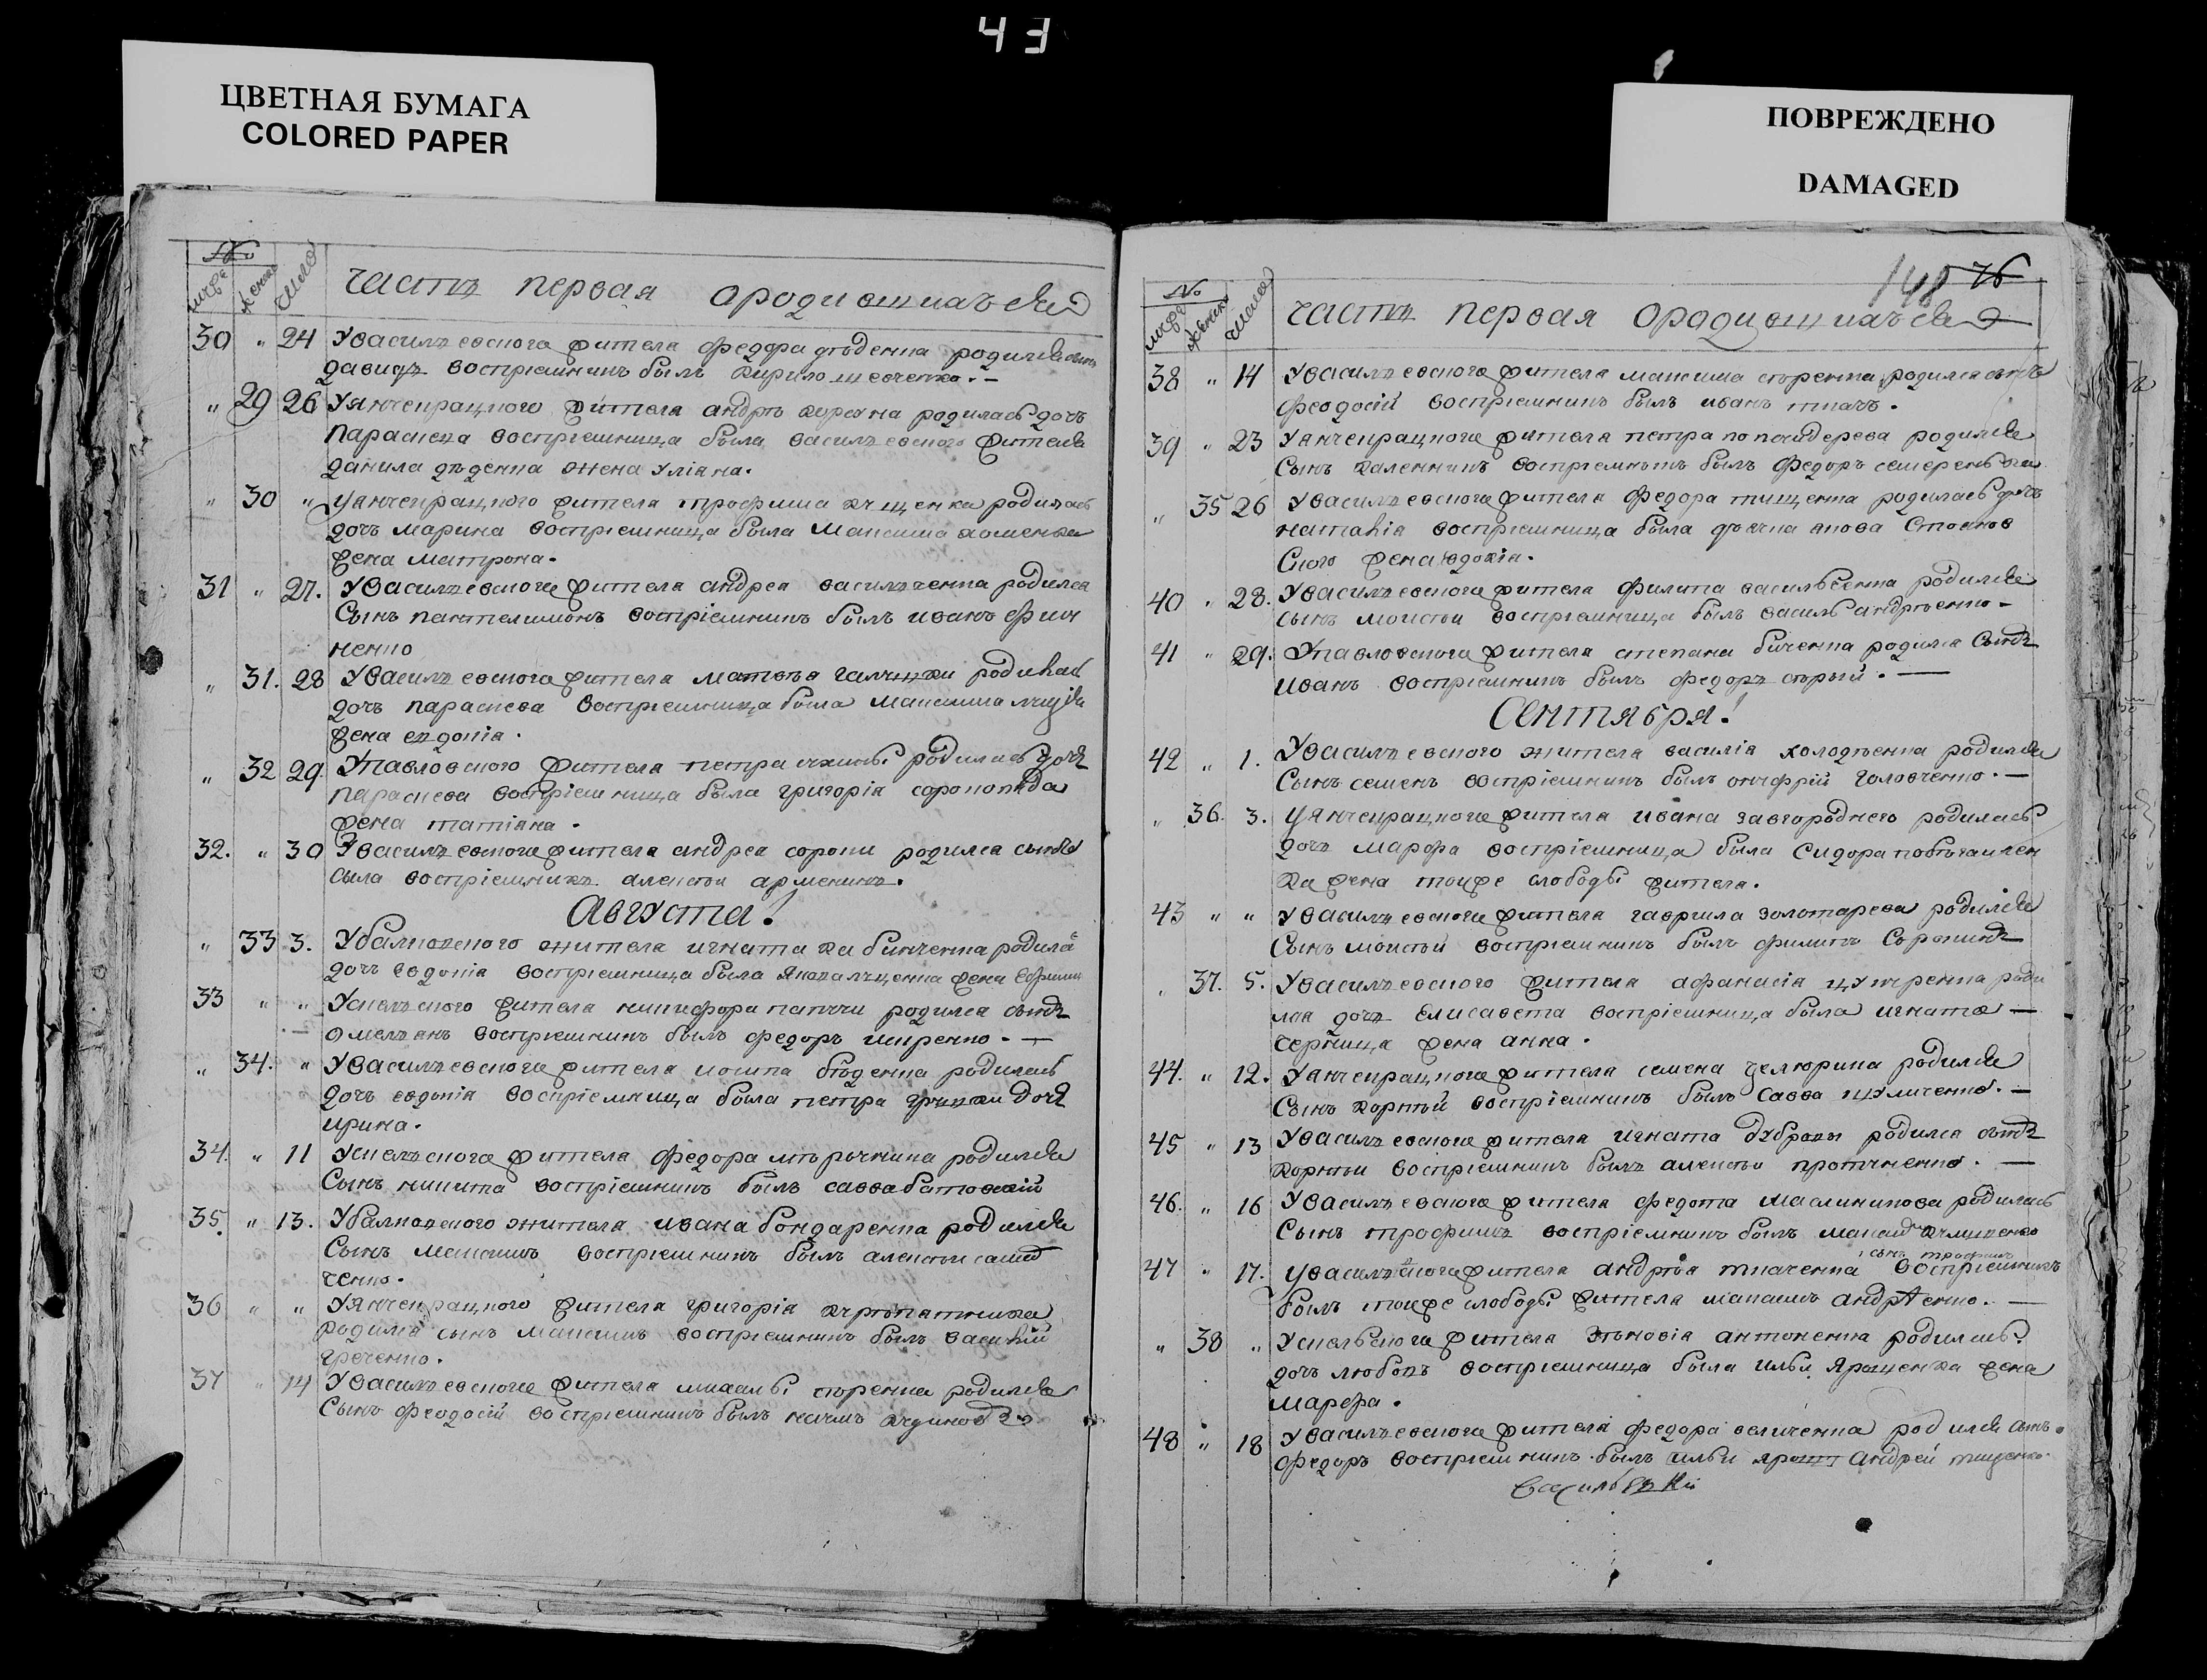 43
ЦВЕТНАЯ БУМАГА
COLORED PAPER
ПОВРЕЖДЕНО
DAMAGED
№
число
часть первая ородившихся
30 " 24 Увасильевского жителя федора дѣденка родился сынъ
давидъ воспріемникъ былъ кирило шевченко. –
" 29 26 Уянчекрацкого жителя андрѣ родилась дочь
параскева воспріемница была васильевского жителя
данила дѣденка жена уліана.
" 30 " Уянчекрацкого жителя трофима кущенка родилась
дочь марина воспріемница была максима хоменка
жена матрона.
31 " 27. Увасильевского жителя андрея васильченка родился
Сынъ пантелимонъ воспріемникъ былъ иванъ
ненко
" 31. 28 Увасильевского жителя матвѣя галушки родилась
дочь параскева воспріемница была максима
жена евдокія.
" 32 29. Упавловского жителя петра родилась дочь
параскева воспріемница была григорія сороколѣда
жена татіана.
32. " 30 Увасильевского жителя андрея сороки родился сынъ
сила воспріемникъ алексѣй арменинъ.
Августа!
" 33 3. Убалковского жителя игната бинченка родила
дочь Евдокія воспріемница была жена Ефимія
33 " " Ускельского жителя никифора папучи родился сынъ
омельянъ воспріемникъ былъ федоръ ширенко. –
" 34. " Увасильевского жителя иосипа бѣденка родилась
дочь евдокія воспріемница была петра дочь
ирина.
34. " 11 Ускельского жителя федора мѣрочника родился
Сынъ никита воспріемникъ былъ савва батовскій
35. " 13. Убалковского жителя ивана бондаренка родился
Сынъ максимъ воспріемникъ былъ алексѣй
ченко.
36 " " Уянчекрацкого жителя григорія курѣпатника
родился сынъ максимъ воспріемникъ былъ василій
греченко.
37 " 14 Увасильевского жителя сѣренка родился
Сынъ феодосій воспріемникъ былъ наумъ
148 76
№
число
часть первая ородившихся
38 " 14 Увасильевского жителя максима сѣренка родился сынъ
феодосій воспріемникъ былъ иванъ ткачъ.
39 " 23 Уянчекрацкого жителя петра попсидерева родился
Сынъ каленникъ воспріемникъ былъ федоръ
" 35 26 Увасильевского жителя федора тищенка родилась дочь
наталія воспріемница была дьячка якова Стоянов
Ского жена евдокія.
40 " 28. Увасильевского жителя филипа васильченка родился
сынъ моисей воспріемница былъ василь андрѣенко –
41 " 29. Упавловского жителя степана биченка родился Сынъ
иванъ воспріемникъ былъ федоръ сѣрый. –
Сентября!
42 " 1. Увасильевского жителя василія холодѣенка родился
Сынъ семенъ воспріемникъ былъ онуфрій головченко. –
" 36. 3. Уянчекрацкого жителя ивана завгороднего родилась
дочь марфа воспріемница была Сидора побѣгайлен
ка жена тоиже слободы жителя.
43 " " Увасильевского жителя гаврила золотарева родился
Сынъ моисѣй воспріемникъ былъ филипъ Сорокинъ
" 37. 5. Увасильевского жителя афанасія роди
лая дочь Елисавета воспріемница была игната –
черница жена анна.
44. " 12. Уянчекрацкого жителя семена челюрина родился
Сынъ корнѣй воспріемникъ былъ Савва –
45 " 13 Увасильевского жителя игната дубровы родился сынъ
корнѣи воспріемникъ былъ алексѣй –
46. " 16 Увасильевского жителя федота масликикова родилась
Сынъ трофимъ воспріемникъ былъ максимъ
сынъ трофимъ
47 " 17. Увасильевского жителя андрѣя ткаченка воспріемникъ
былъ тоиже слободы жителя максимъ андрѣенко. –
" 38 " Ускельского жителя зѣновія антоненка родилась.
дочь любовь воспріемница была ильи ярошенка жена
марфа.
48 " 18 Увасильевского жителя федора величенка родился сынъ.
федоръ воспріемникъ былъ ильи ярош андрей тищенко.